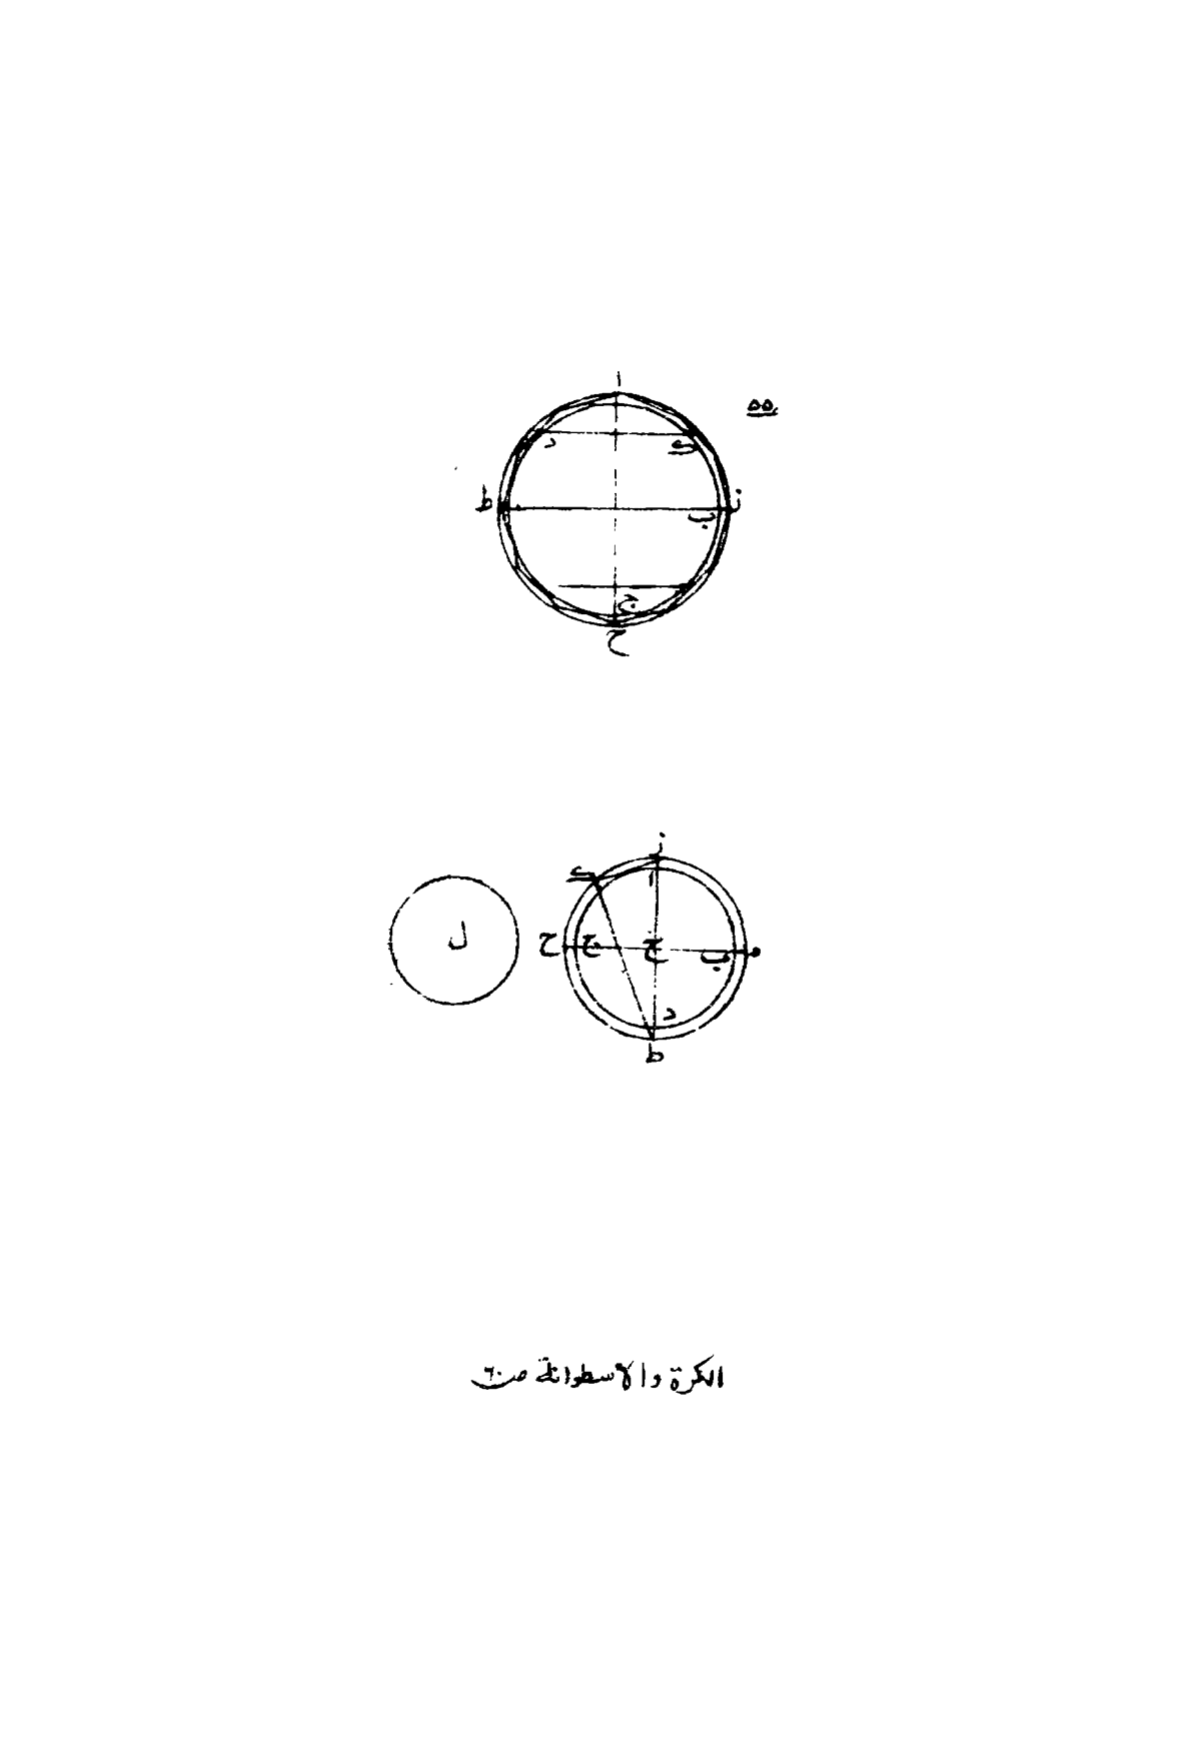 ا
٥٥
د ى
ط ب ز
ج
ح
ز
ى ا
ل ح ج ح ب ه
د
ط
الكرة والاسطوانة ص ٦٠